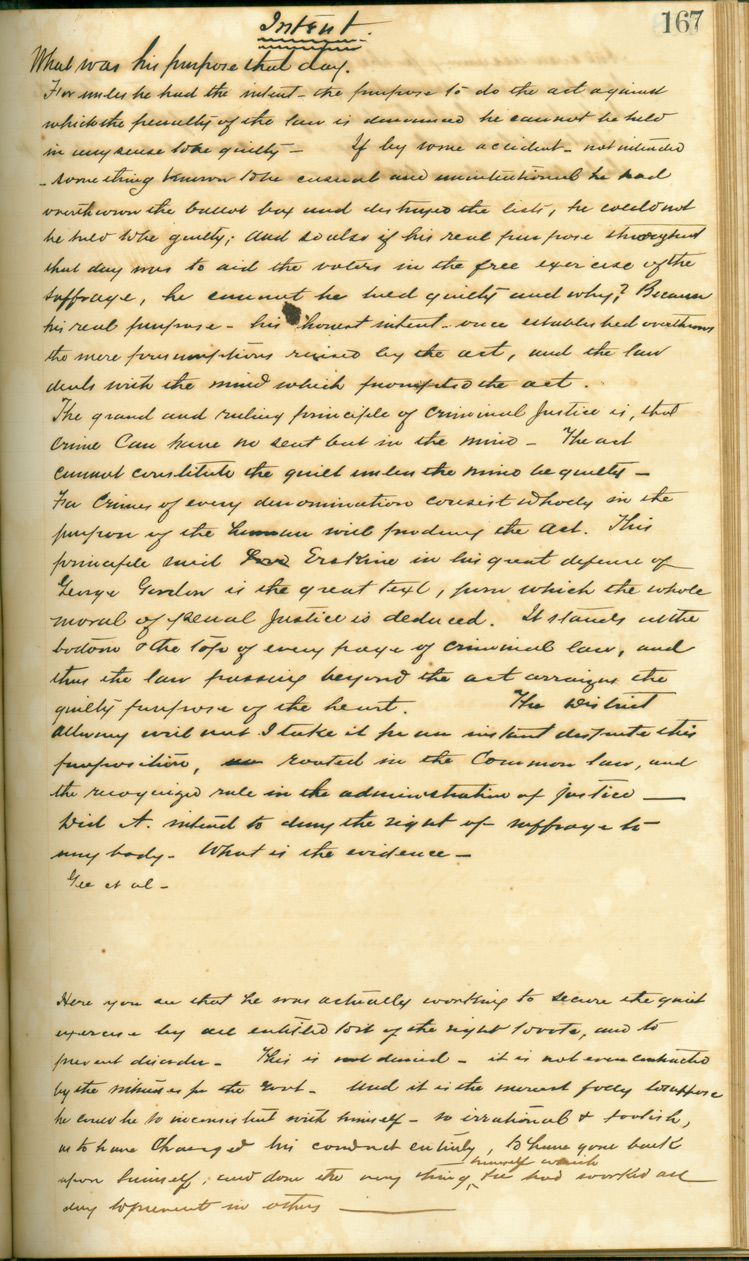 167
Intent.
What was his purpose that day.
For unless he had the intent - the purpose to do the act against
which the penalty of the law is denounced he cannot be held
in any sense to be guilty - If by some accident - not intended
- something known to be casual and unintentional he had
overthrown the ballot box and destroyed the lists, he could not
be held to be guilty; and so also if his real purpose throughout
that day was to aid the voters in the free exercise of the
suffrage, he cannot be held guilty and why? Because
his real purpose - his honest intent - once established overthrows
the mere presumptions raised by the act, and the law
deals with the mind which prompted the act.
The grand and ruling principle of Criminal Justice is, that
Crime Can have no seat but in the mind - The act
cannot constitute the guilt unless the mind be guilty -
For Crimes of every denomination consist wholly in the
purpose of the human will producing the act. This
principle said Erskine in his great defence of
George Gordon is the great text, from which the whole
moral of penal Justice is deduced. It stands at the
bottom & the top of every page of criminal law, and
thus the law passing beyond the act arraigns the
guilty purpose of the heart. The District
Attorney will not I take it for an instant dispute this
proposition, rooted in the Common law, and
the recognized rule in the administration of justice —
Did A. intend to deny the right of suffrage to
any body - What is the evidence -
Gee et al -
Here you see that he was actually working to secure the quiet
exercise by all entitled to it of the right to vote, and to
prevent disorder - This is not denied - it is not even contradicted
by the witnesses for the Govt - And it is the merest folly to suppose
he could be so inconsistent with himself - so irrational & foolish,
as to have Changed his conduct entirely, to have gone back
upon himself, and done the very thing himself which he had worked all
day to prevent in others —